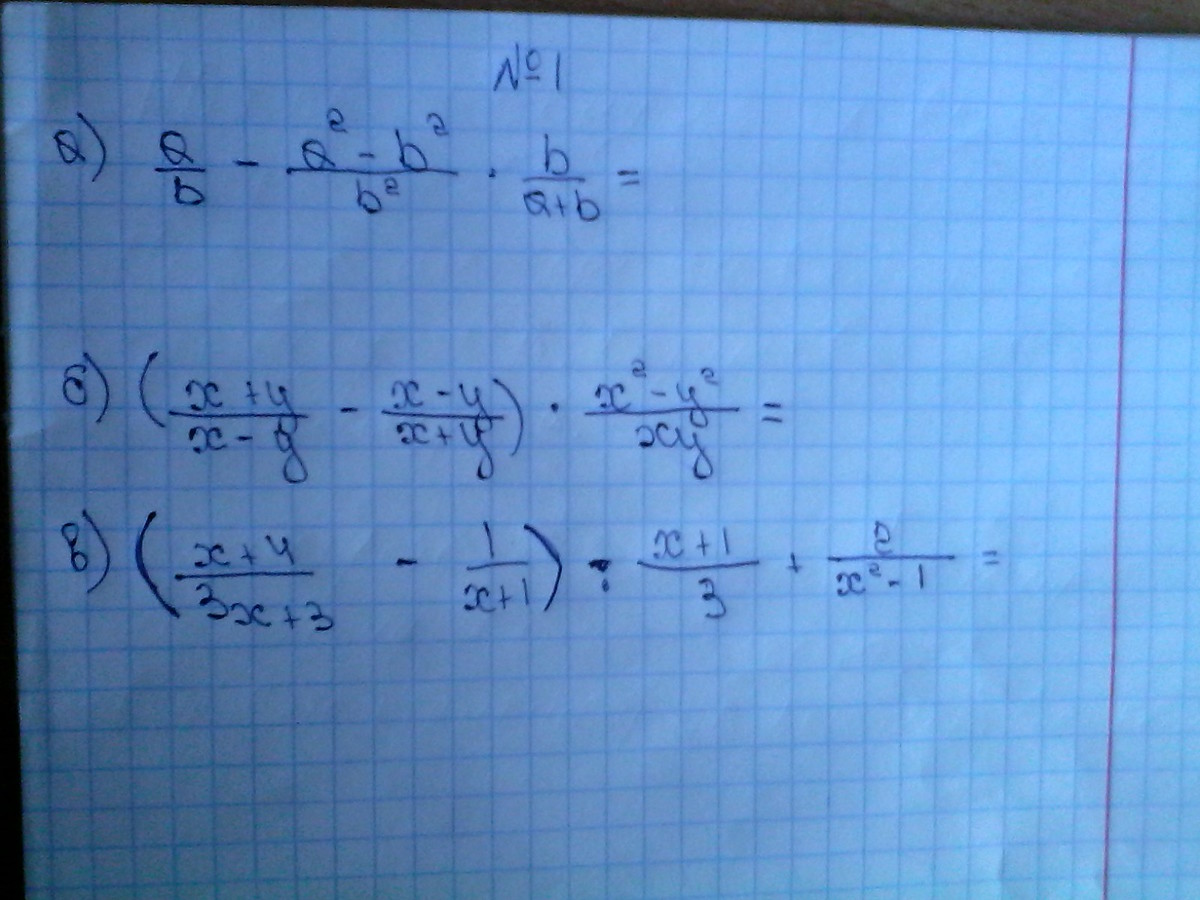 №1
а) a/b - (a² - b²)/b² · b/(a+b) =
б) ((x+y)/(x-y) - (x-y)/(x+y)) · (x²-y²)/(xy) =
в) ((x+4)/(3x+3) - 1/(x+1)) : (x+1)/3 + 2/(x²-1) =